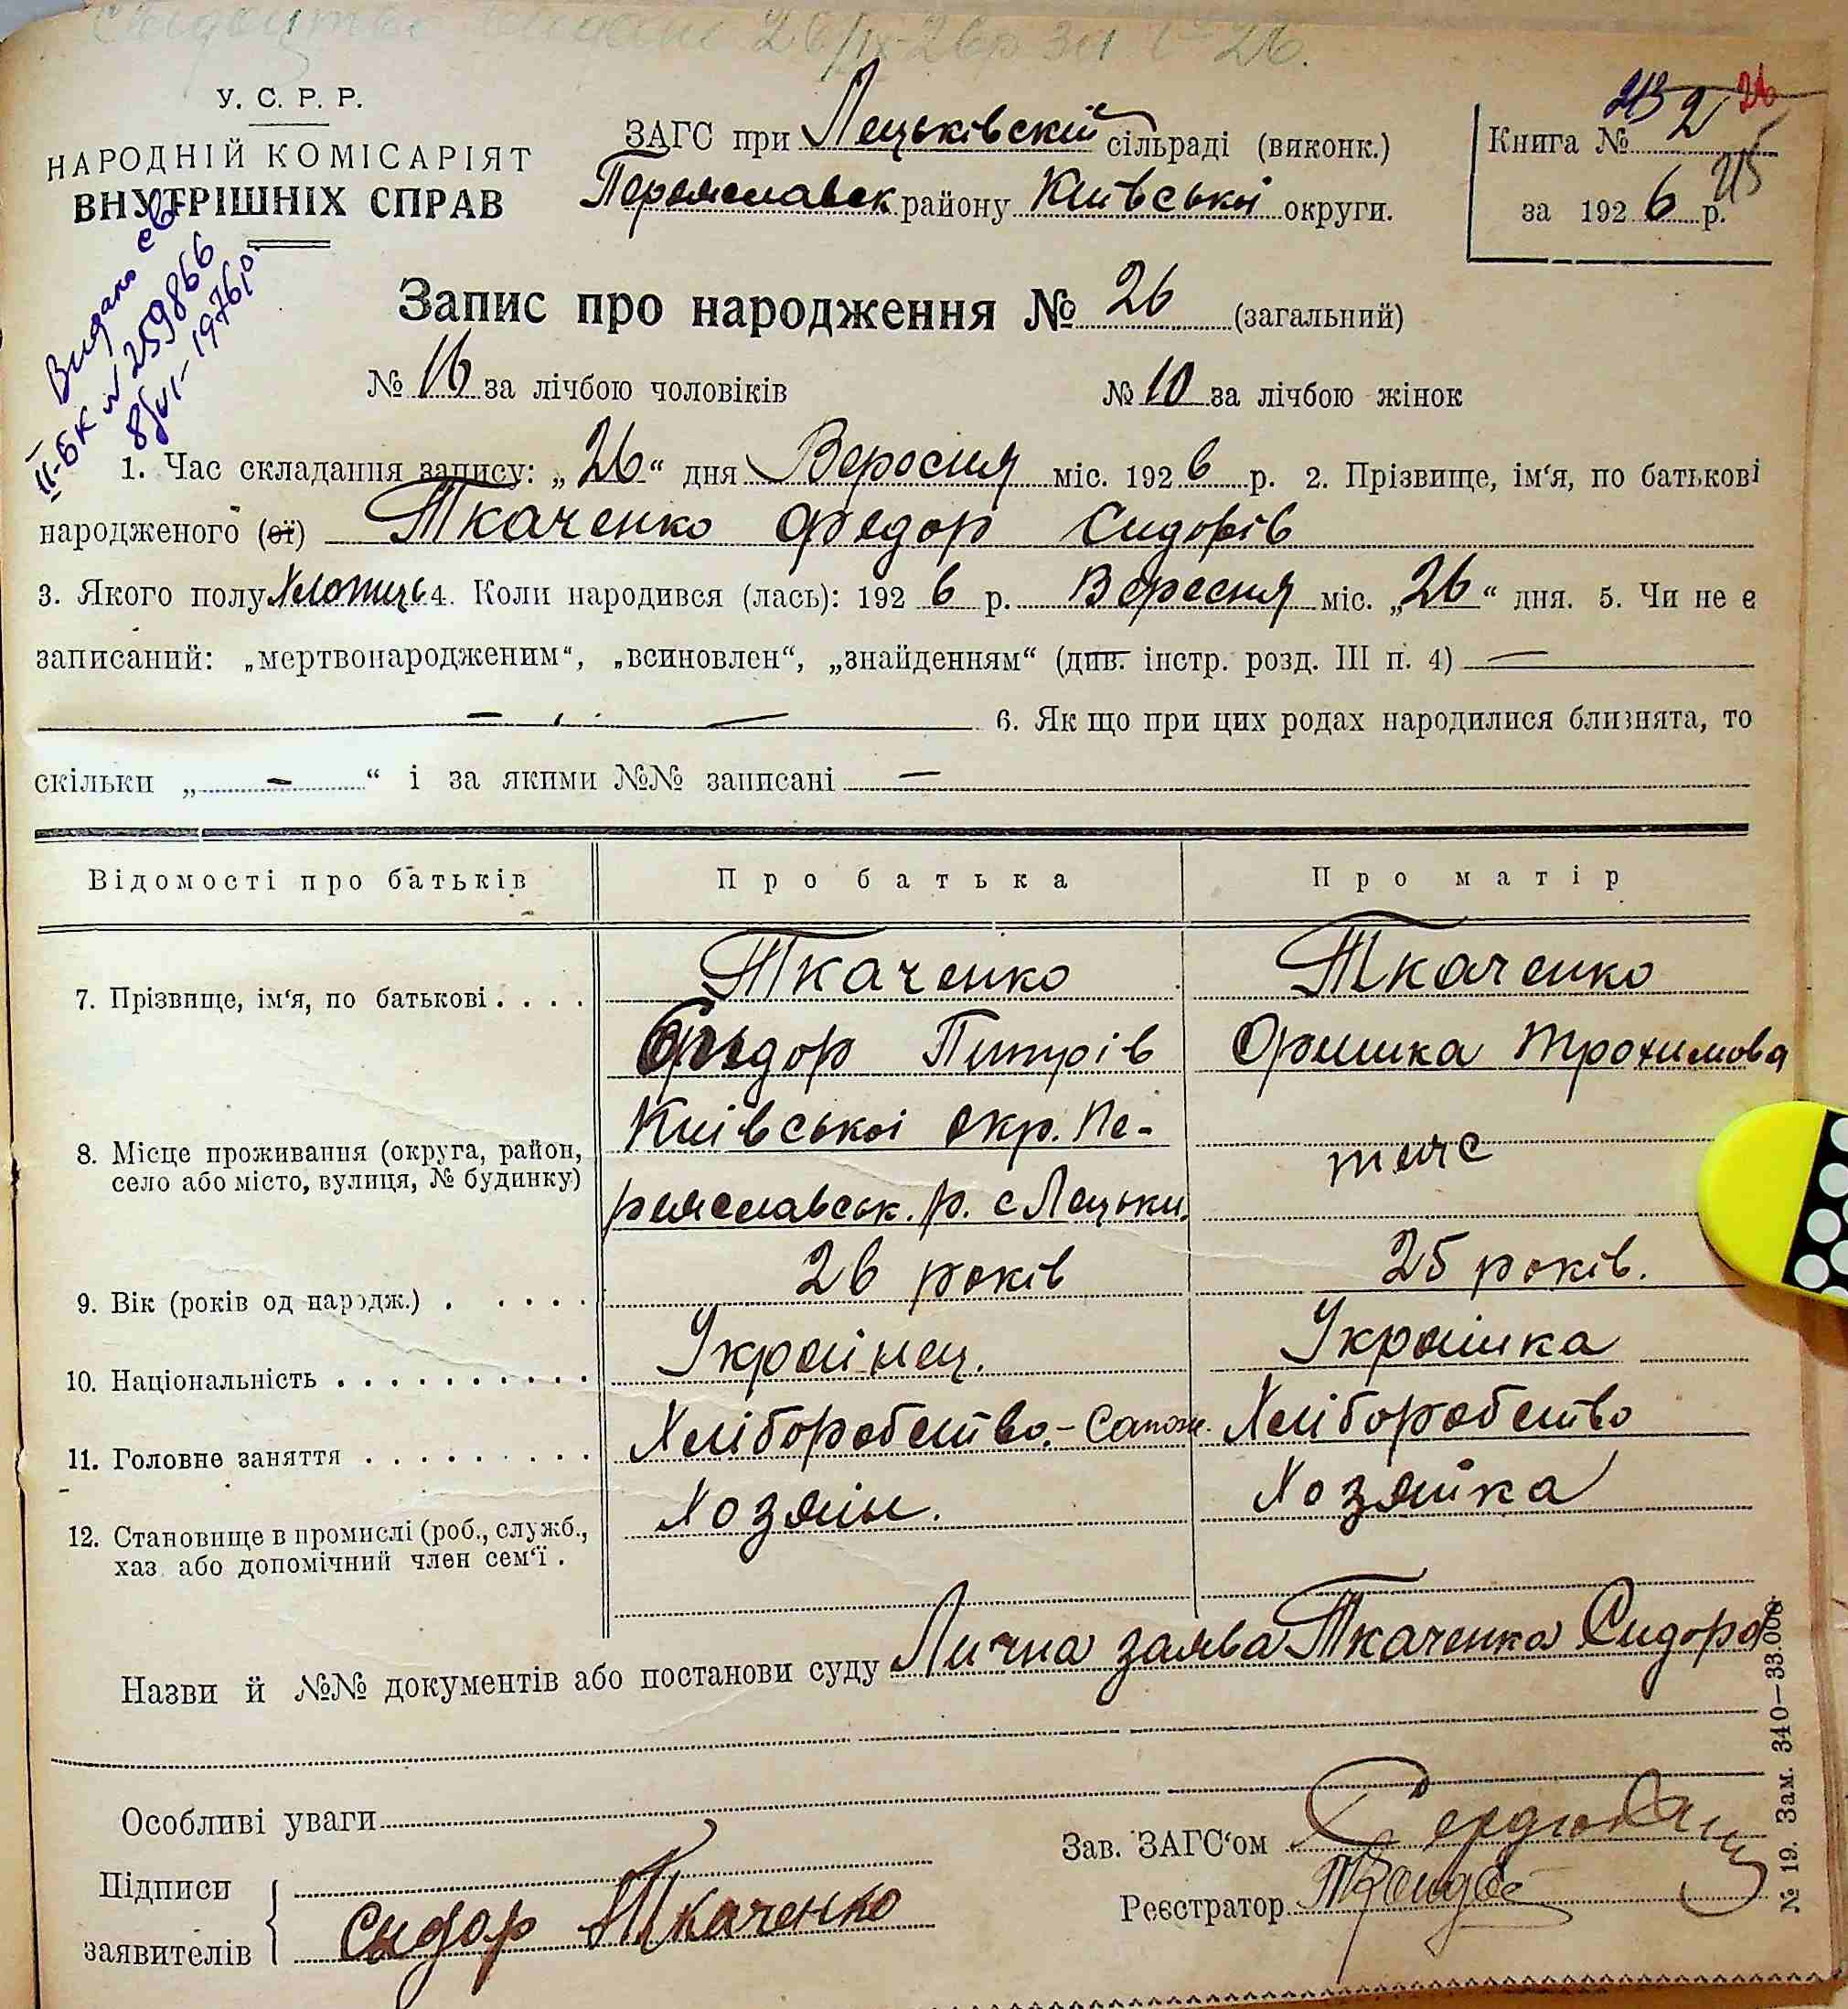 Свидоцтво видане 26/IX-26р за № 26.
У. С. Р. Р.
НАРОДНІЙ КОМІСАРІЯТ
ВНУТРІШНІХ СПРАВ
ЗАГС при Лецьківській сільраді (виконк.)
Переяславськ району Київської округи.
Книга № 2
за 1926 р.
26
Видано св
ІІ-БК № 259866
8/VI-1976р.
Запис про народження № 26 (загальний)
№ 16 за лічбою чоловіків № 10 за лічбою жінок
1. Час складання запису: „26“ дня Веросня міс. 1926 р. 2. Прізвище, ім‘я, по батькові
народженого (ої) Ткаченко Федор Сидорів
3. Якого полу Хлопець 4. Коли народився (лась): 1926 р. Вересня міс. „26“ дня. 5. Чи не є
записаний: „мертвонародженим“, „всиновлен“, „знайденням“ (див. інстр. розд. III п. 4) —
— — 6. Як що при цих родах народилися близнята, то
скільки „ - “ і за якими №№ записані —
Відомості про батьків Про батька Про матір
7. Прізвище, ім‘я, по батькові . . . . Ткаченко Ткаченко
Сидор Питрів Оришка Трохимова
8. Місце проживання (округа, район,
село або місто, вулиця, № будинку)
Київської окр. Пе-
реяславськ. р. с Лецьки.
теже
9. Вік (років од народж.) . . . . . 26 років 25 років.
10. Національність . . . . . . . . . . Українец. Українка
11. Головне заняття . . . . . . . . . Хліборобство.- Сапож. Хліборобство
12. Становище в промислі (роб., служб.,
хаз або допомічний член сем‘ї .
Хозяїн. Хозяйка
Назви й №№ документів або постанови суду Лична заява Ткаченка Сидора
Особливі уваги
Зав. ЗАГС‘ом
Підписи
заявителів
Сидор Ткаченко
Реєстратор
№ 19. Зам. 340—33.000